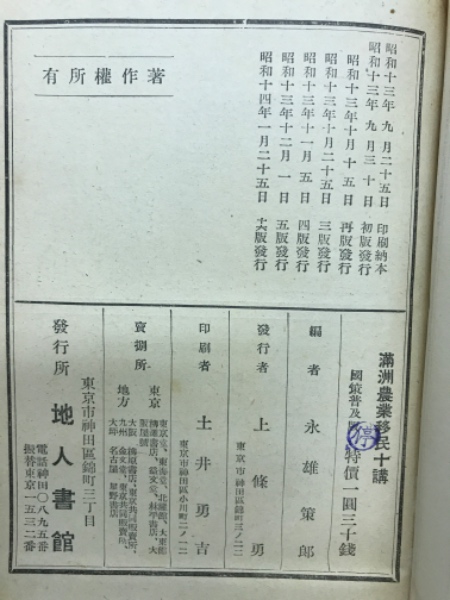 昭和十三年九月二十五日 印刷納本
昭和十三年九月三十日 初版發行
昭和十三年十月十五日 再版發行
昭和十三年十月二十五日 三版發行
昭和十三年十一月五日 四版發行
昭和十三年十二月一日 五版發行
昭和十四年一月二十五日 六版發行
著作權所有
滿洲農業移民十講
國策普及版 特價一圓三十錢
停
編者 永雄策郎
發行者 上條勇
東京市神田區錦町三ノ二二
印刷者 土井勇吉
東京市神田區小川町二ノ一二
賣捌所
東京 東京堂、東海堂、北隆館、大東館
地方
發行所 地人書館
東京市神田區錦町三丁目
電話神田〇八九五番
振替東京一五三二番